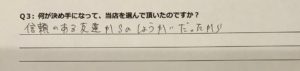 Q3:何が決め手になって、当店を選んで頂いたのですか?
信頼のある友達からのしょうかいだったから